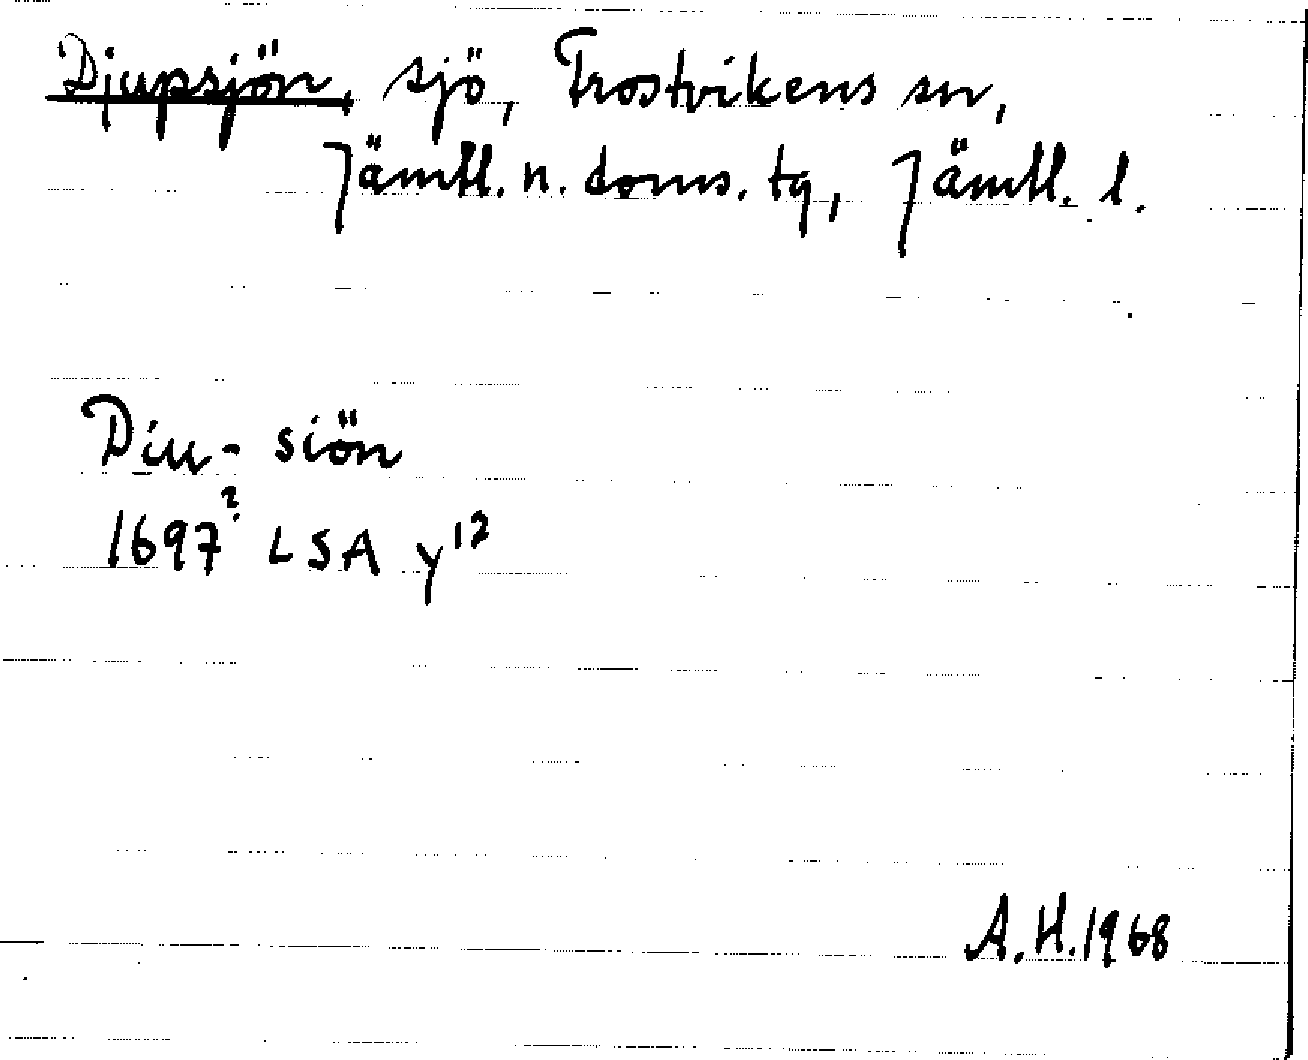 Djupsjön, sjö, Frostvikens sn,
Jämtl. n. doms. tg, Jämtl. l.
Diu- siön
1697? LSA y12
A.H.1968